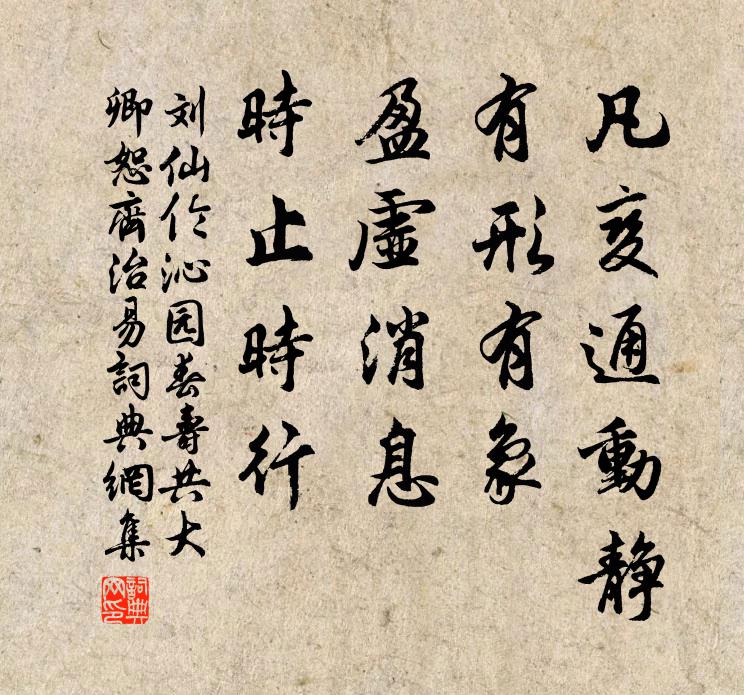 凡变通動静
有形有象
盈虚消息
時止時行
刘仙伦沁园春寿共大
卿恕齋治易詞典網集
詞典网印